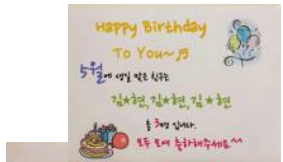 Happy Birthday
To You~♬
5월에 생일 맞은 친구는
김★현, 김★현, 김★현
총 3명 입니다.
모두 모여 축하해주세요^^